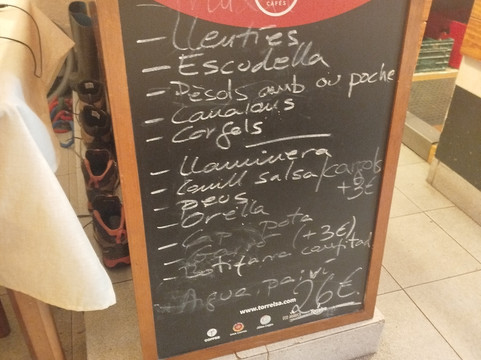 CAFÉS
- Llentíes
- Escudella
- Pèsols amb ou poche
- Canalons
- Cargols
- Llaminera
- Conill salsa/cargols +3€
- Peus
- Orella
- Cap i pota
- (+3€)
- Botifarra confitada
- Aigua, pa i vi
26€
www.torrelsa.com